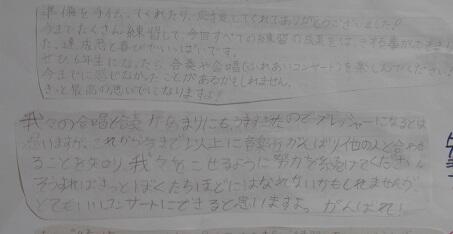 準備を手伝ってくれたり、応援してくれてありがとうございました!
今までたくさん練習して、今回すべての練習の成果を
た、達成感と喜びでいっぱいです。
ぜひ6年生になったら合奏や合唱(ふれあいコンサート)を楽しんでください。
今までに感じなかったことがあるかもしれません。
きっと最高の思いでになりますよ!
我々の合唱合奏があまりにもうますぎたのでプレッシャーになるとは
思いますが、これから今まで以上に音楽をがんばり他の人と合わせ
ることを知り、我々をこせるように努力を続けてください。
そうすればきっとぼくたちほどにはなれないかもしれませんが
とてもいいコンサートにできると思いますよ。がんばれ!